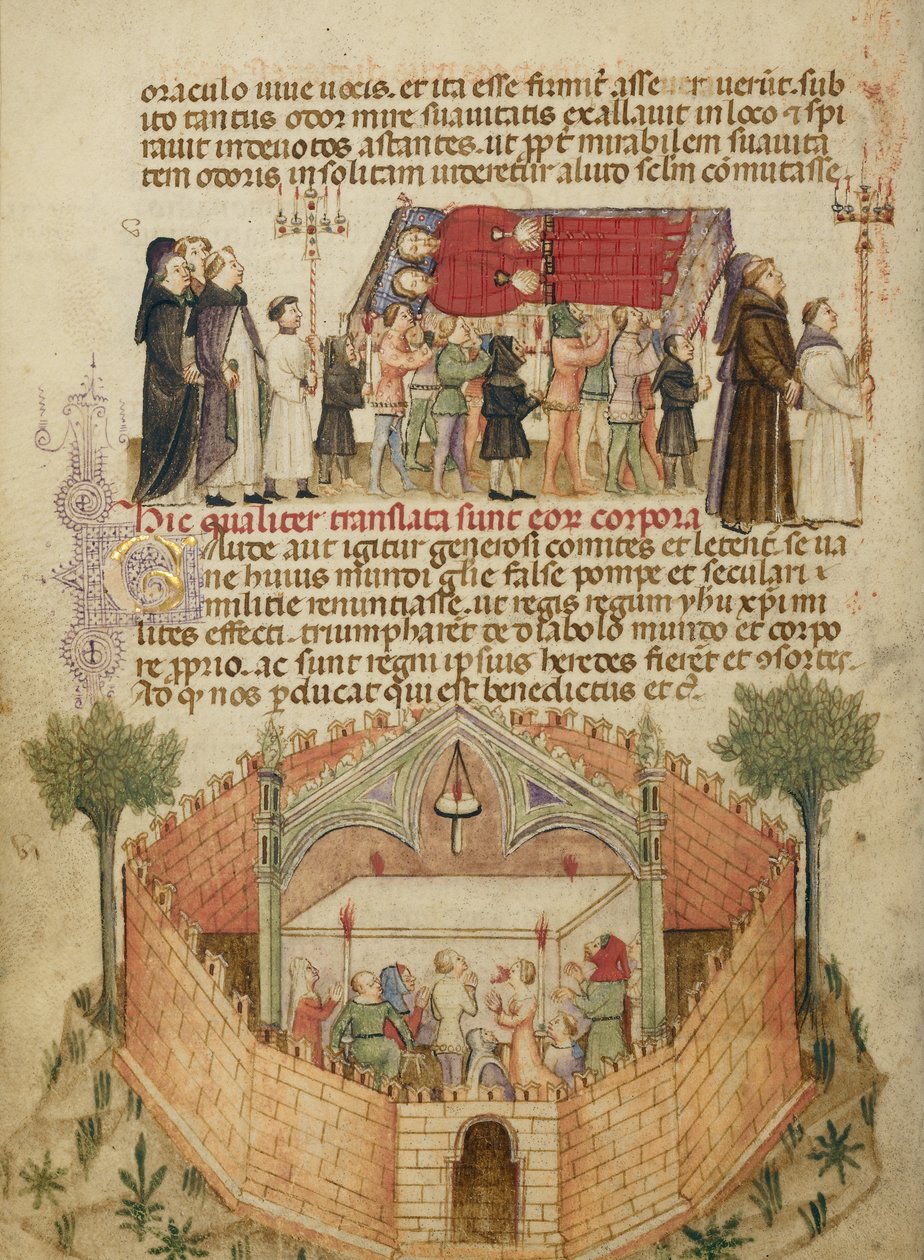 oraculo uiue uocis. et ita esse firmit̄ asse uer uer̄ut. sub
ito tantus odor mire suauitatis exallauit in loco ⁊ spi
rauit in deuotos astantes. ut ꝓp̄t mirabilem suauita
tem odoris insolitam uideret̄ur aliud sc̄lm cōmutasse.
Hic qualiter translata sunt eoꝝ corpora
Gaude aut igitur generosi comites et letent̄ se ua
ne huius mundi gl̄ie false pompe et seculari
militie renuntiasse. ut regis regum yhu xp̄i mi
lites effecti. triumphar̄et de diabolo mundo et corpo
re ꝓprio. ac sunt regni ipsius heredes fier̄et et ꝯsortes.
Ad qͥ nos ꝑducat qui est benedictus et c̄.